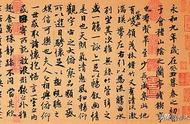 永和九年歲在癸丑暮春之初會
于會稽山陰之蘭亭脩稧事
也群賢畢至少長咸集此地
有崇山峻領茂林脩竹又有清流激
湍暎帶左右引以為流觴曲水
列坐其次雖無絲竹管弦之
盛一觴一詠亦足以暢敘幽情
是日也天朗氣清惠風和暢仰
觀宇宙之大俯察品類之盛
所以遊目騁懷足以極視聽之
娛信可樂也夫人之相與俯仰
一世或取諸懷抱悟言一室之內
或因寄所託放浪形骸之外雖
趣舍萬殊靜躁不同